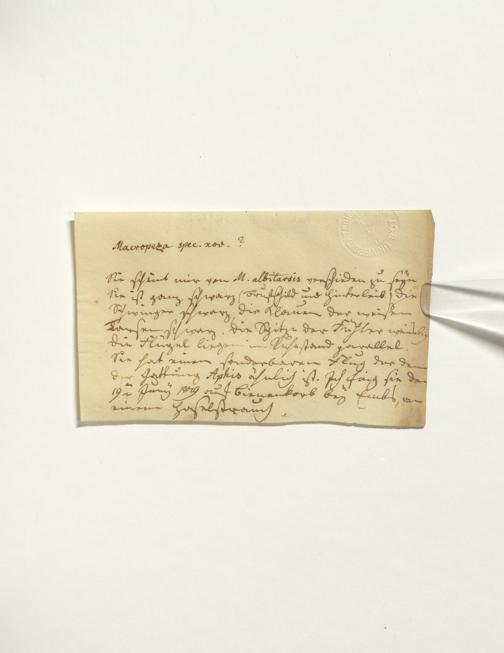 Macropeza spec. nov. ?
Sie scheint mir von M. albitarsis verschieden zu seyn
Sie ist ganz schwarz (Brustschild und Hinterleib) die
Schwinger schwarz, die Klauen der weißen
Tarsen schwarz. die Spitze der Fühler weißlich
die Flügel liegen im Ruhestand parallel
Sie hat einen sonderbaren Flug der dem
der Gattung Aphis ähnlich ist. Ich fing sie den
19n Juny 1819 auf Bienenkorb bey Embs, an
einem Haselstrauch